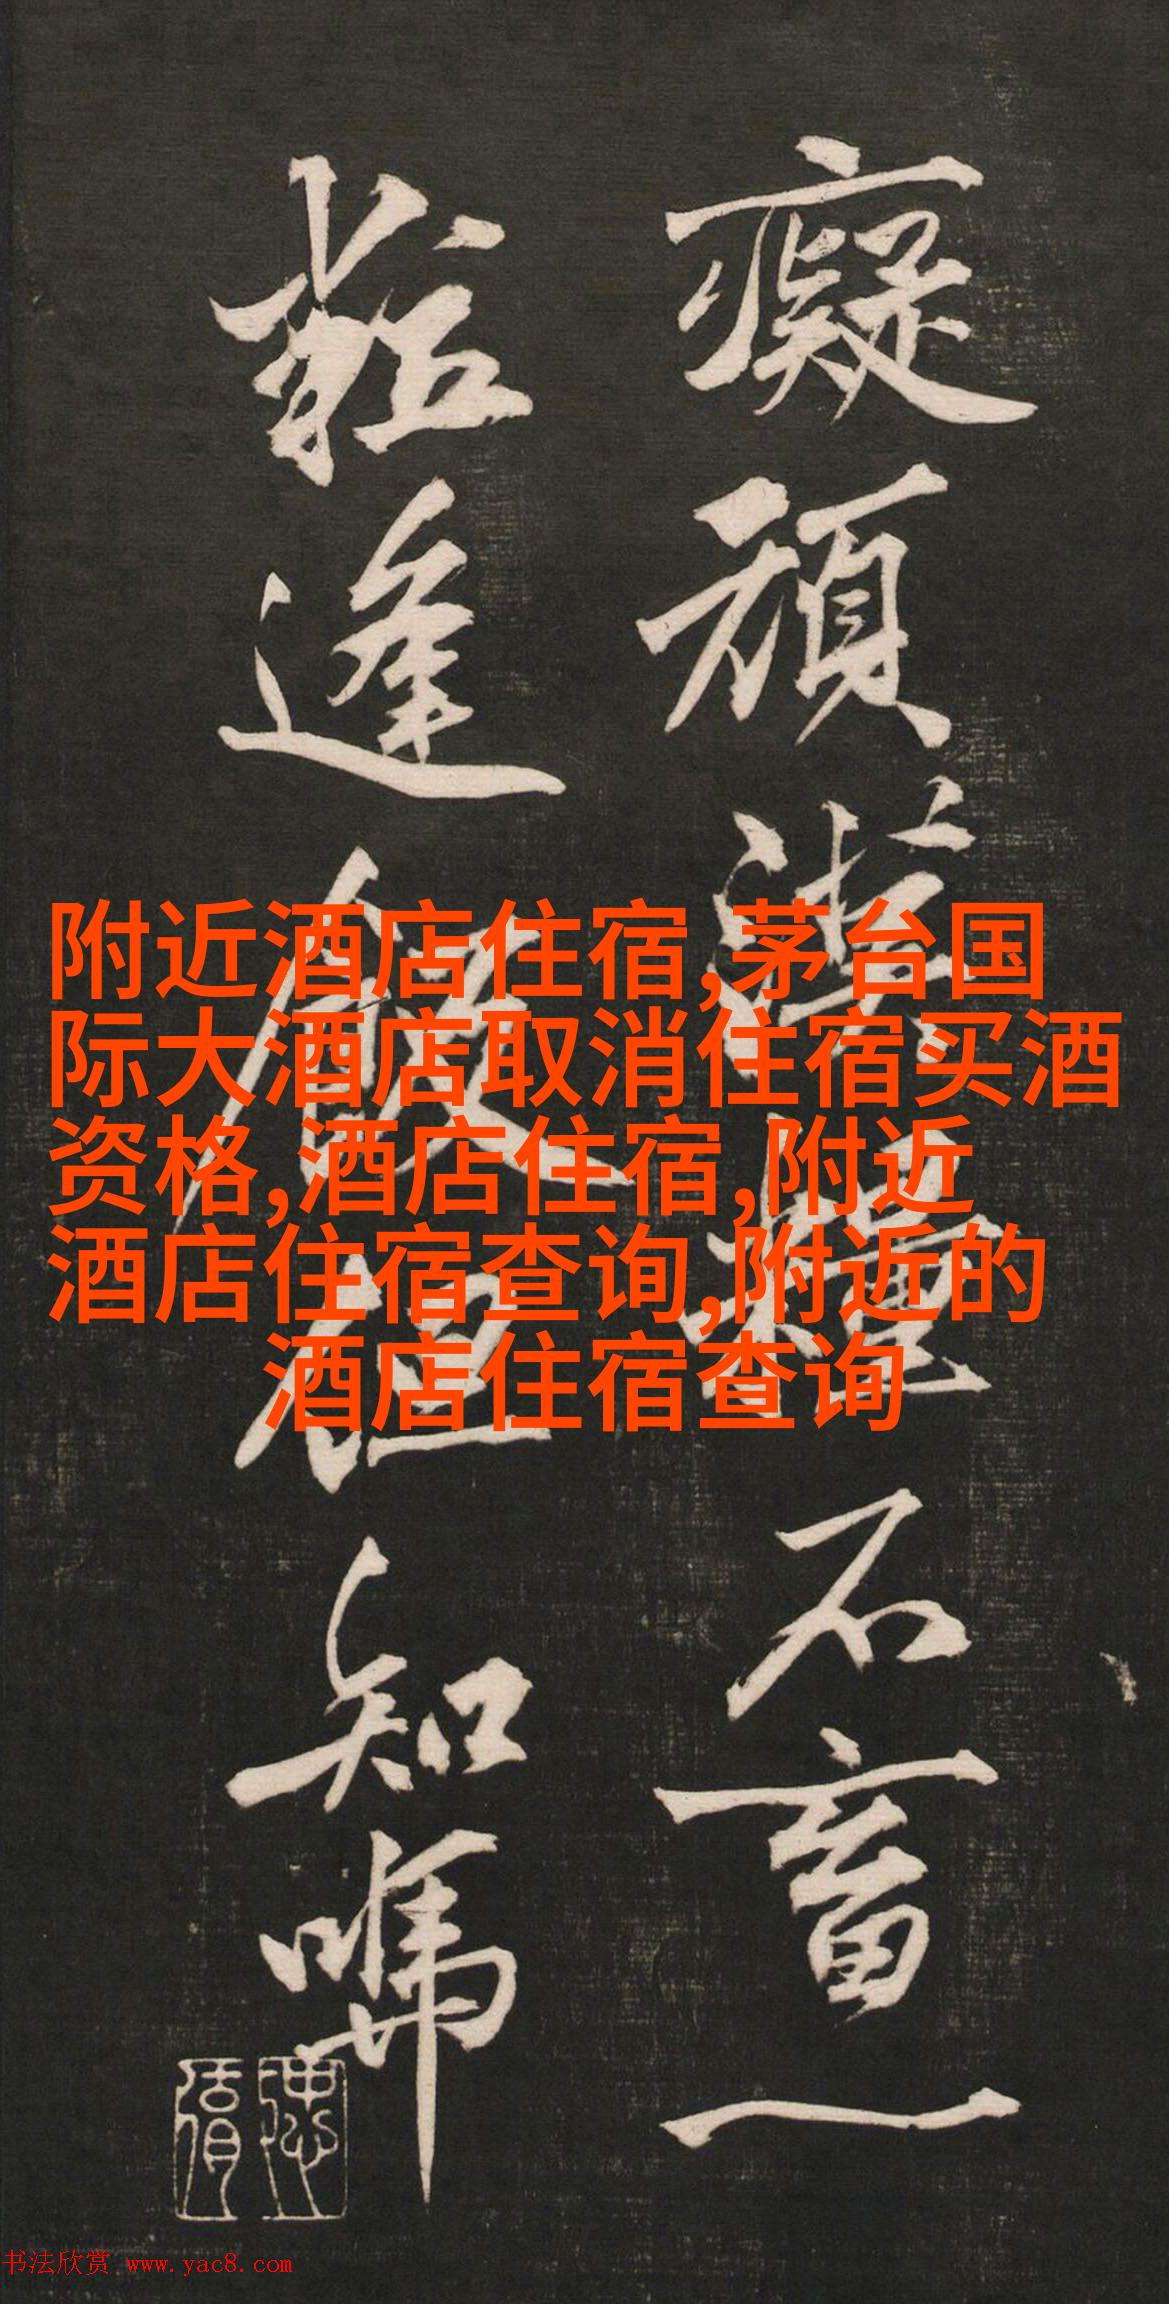 附近酒店住宿,茅台国
际大酒店取消住宿买酒
资格,酒店住宿,附近
酒店住宿查询,附近的
酒店住宿查询
癡頑
畜一
逢飯但知
书法欣赏 www.yac8.com